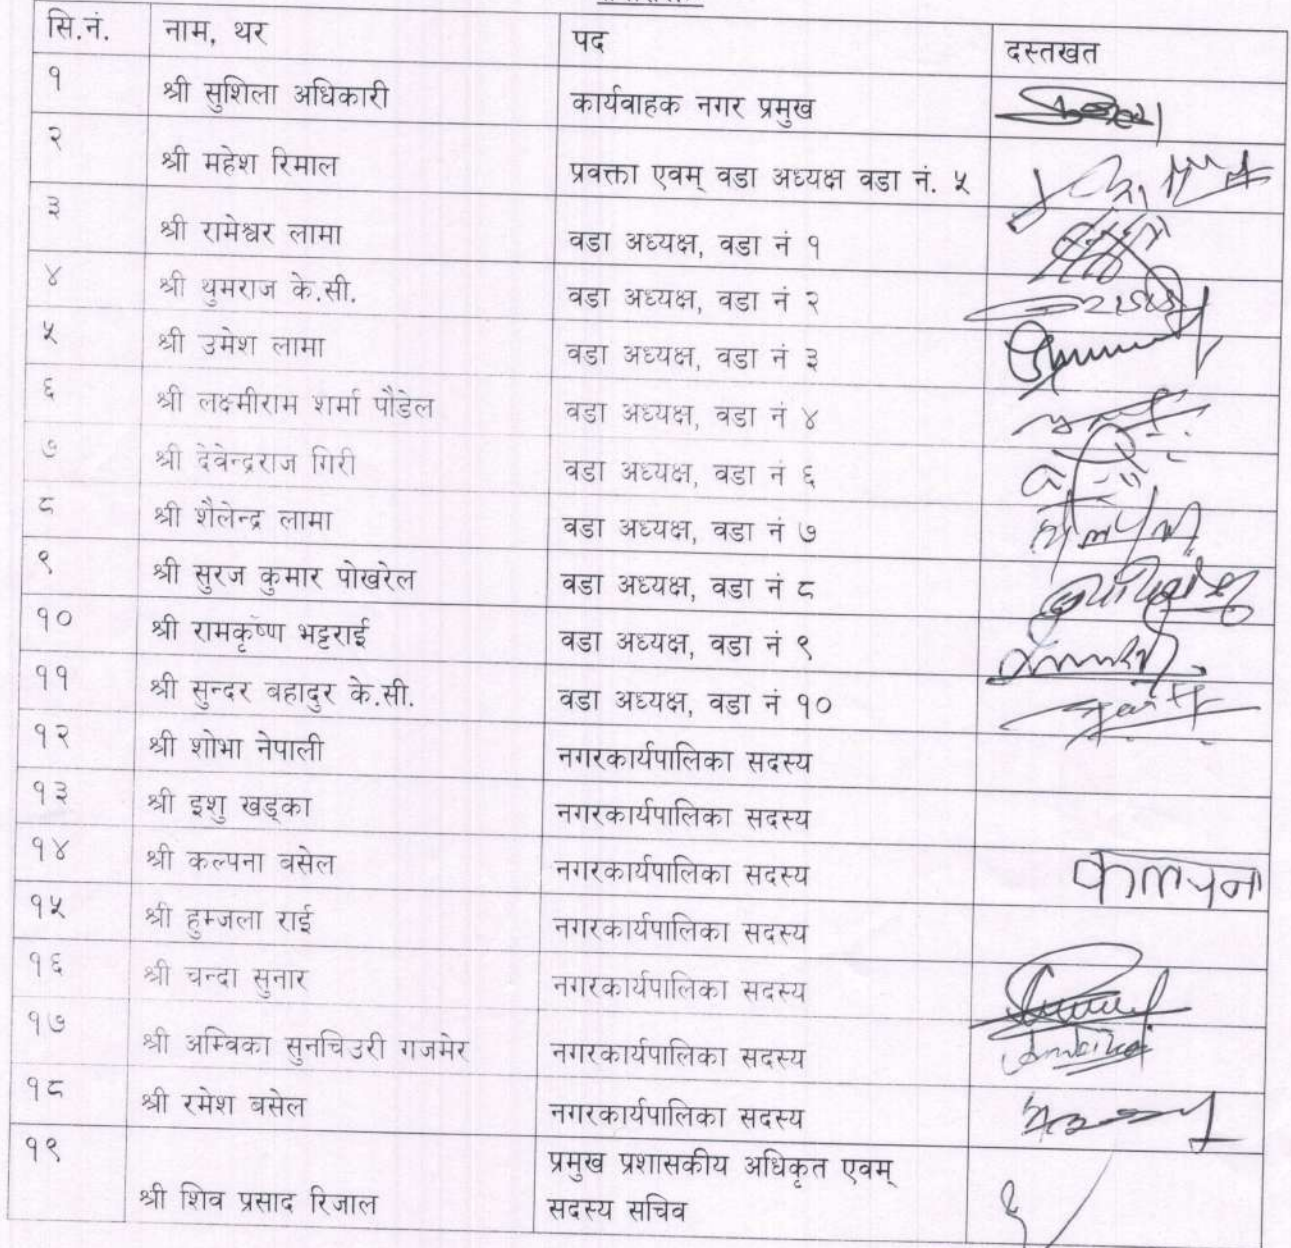 सि.नं. नाम, थर पद दस्तखत
१ श्री सुशिला अधिकारी कार्यवाहक नगर प्रमुख
२ श्री महेश रिमाल प्रवक्ता एवम् वडा अध्यक्ष वडा नं. ५
३ श्री रामेश्वर लामा वडा अध्यक्ष, वडा नं १
४ श्री थुमराज के.सी. वडा अध्यक्ष, वडा नं २
५ श्री उमेश लामा वडा अध्यक्ष, वडा नं ३
६ श्री लक्ष्मीराम शर्मा पौडेल वडा अध्यक्ष, वडा नं ४
७ श्री देवेन्द्रराज गिरी वडा अध्यक्ष, वडा नं ६
८ श्री शैलेन्द्र लामा वडा अध्यक्ष, वडा नं ७
९ श्री सुरज कुमार पोखरेल वडा अध्यक्ष, वडा नं ८
१० श्री रामकृष्ण भट्टराई वडा अध्यक्ष, वडा नं ९
११ श्री सुन्दर बहादुर के.सी. वडा अध्यक्ष, वडा नं १०
१२ श्री शोभा नेपाली नगरकार्यपालिका सदस्य
१३ श्री इशु खड्का नगरकार्यपालिका सदस्य
१४ श्री कल्पना बसेल नगरकार्यपालिका सदस्य कल्पना
१५ श्री हुम्जला राई नगरकार्यपालिका सदस्य
१६ श्री चन्दा सुनार नगरकार्यपालिका सदस्य
१७ श्री अम्विका सुनचिउरी गजमेर नगरकार्यपालिका सदस्य
१८ श्री रमेश बसेल नगरकार्यपालिका सदस्य
१९ प्रमुख प्रशासकीय अधिकृत एवम्
श्री शिव प्रसाद रिजाल सदस्य सचिव